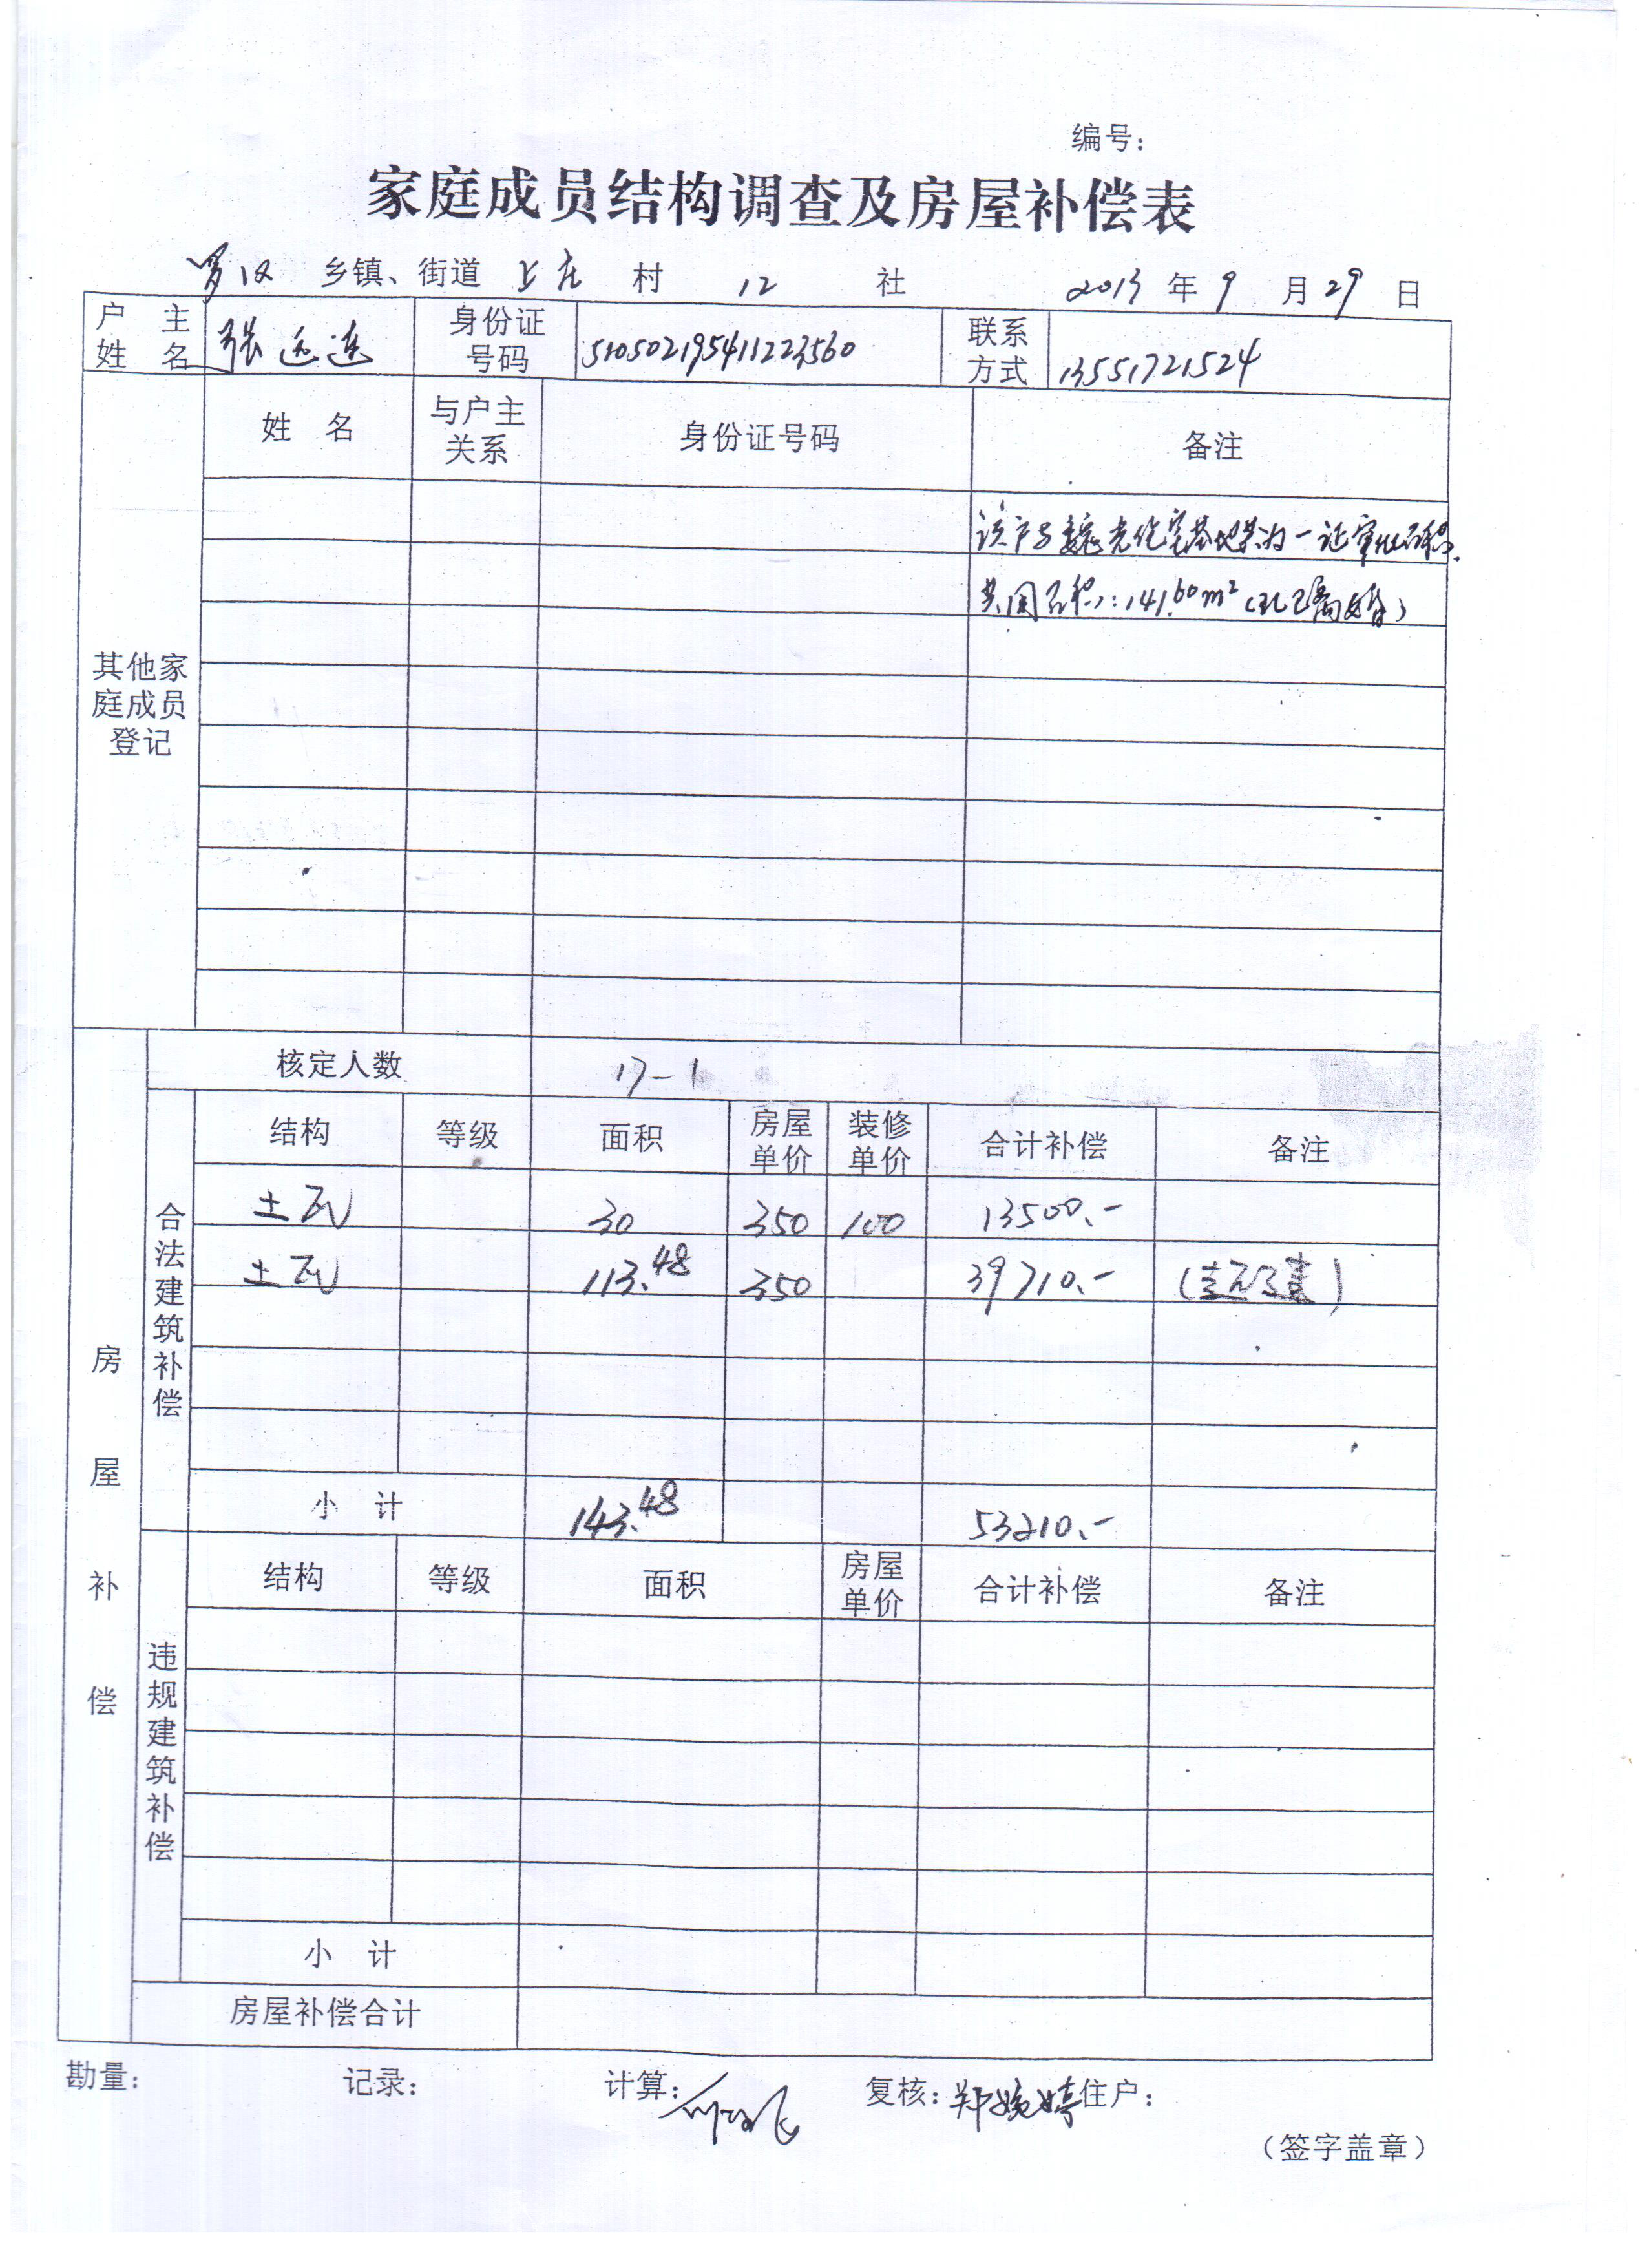 编号：
家庭成员结构调查及房屋补偿表
罗汉 乡镇、街道 上庄 村 12 社 2013 年 9 月 29 日
户主姓名 张 连 身份证号码 510502195411223560 联系方式 13551721524
姓名 与户主关系 身份证号码 备注
该户与 光住宅基地共为一证审批面积.
共同面积:141.60m²(现已离婚)
其他家庭成员登记
核定人数 17-1
结构 等级 面积 房屋单价 装修单价 合计补偿 备注
土瓦 30 350 100 13500.-
土瓦 113.48 350 39710.-
小计 143.48 53210.-
合法建筑补偿
房屋补偿
结构 等级 面积 房屋单价 合计补偿 备注
违规建筑补偿
小计
房屋补偿合计
勘量： 记录： 计算： 复核：郑婉婷 住户：
（签字盖章）